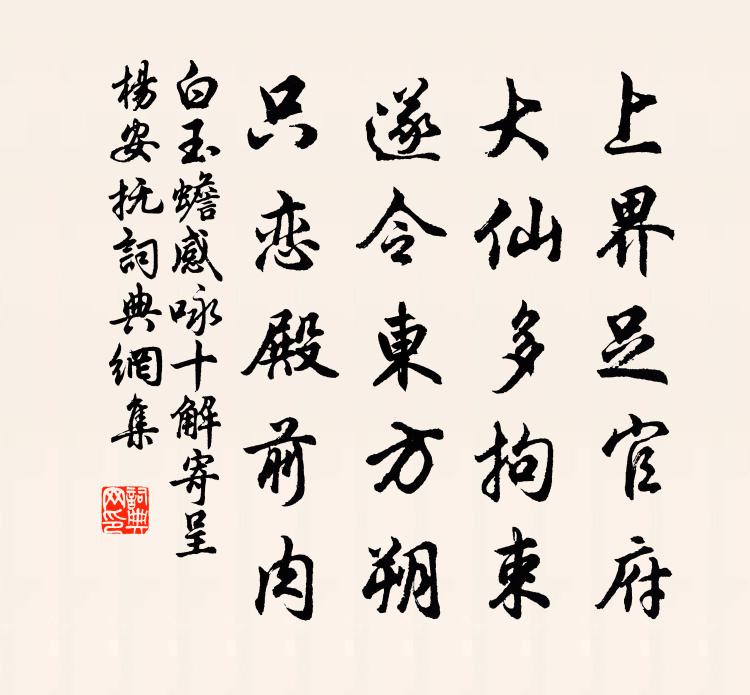 上界足官府
大仙多拘束
遂令東方朔
只恋殿前肉
白玉蟾感咏十解寄呈
楊安抚詞典網集
詞典网印